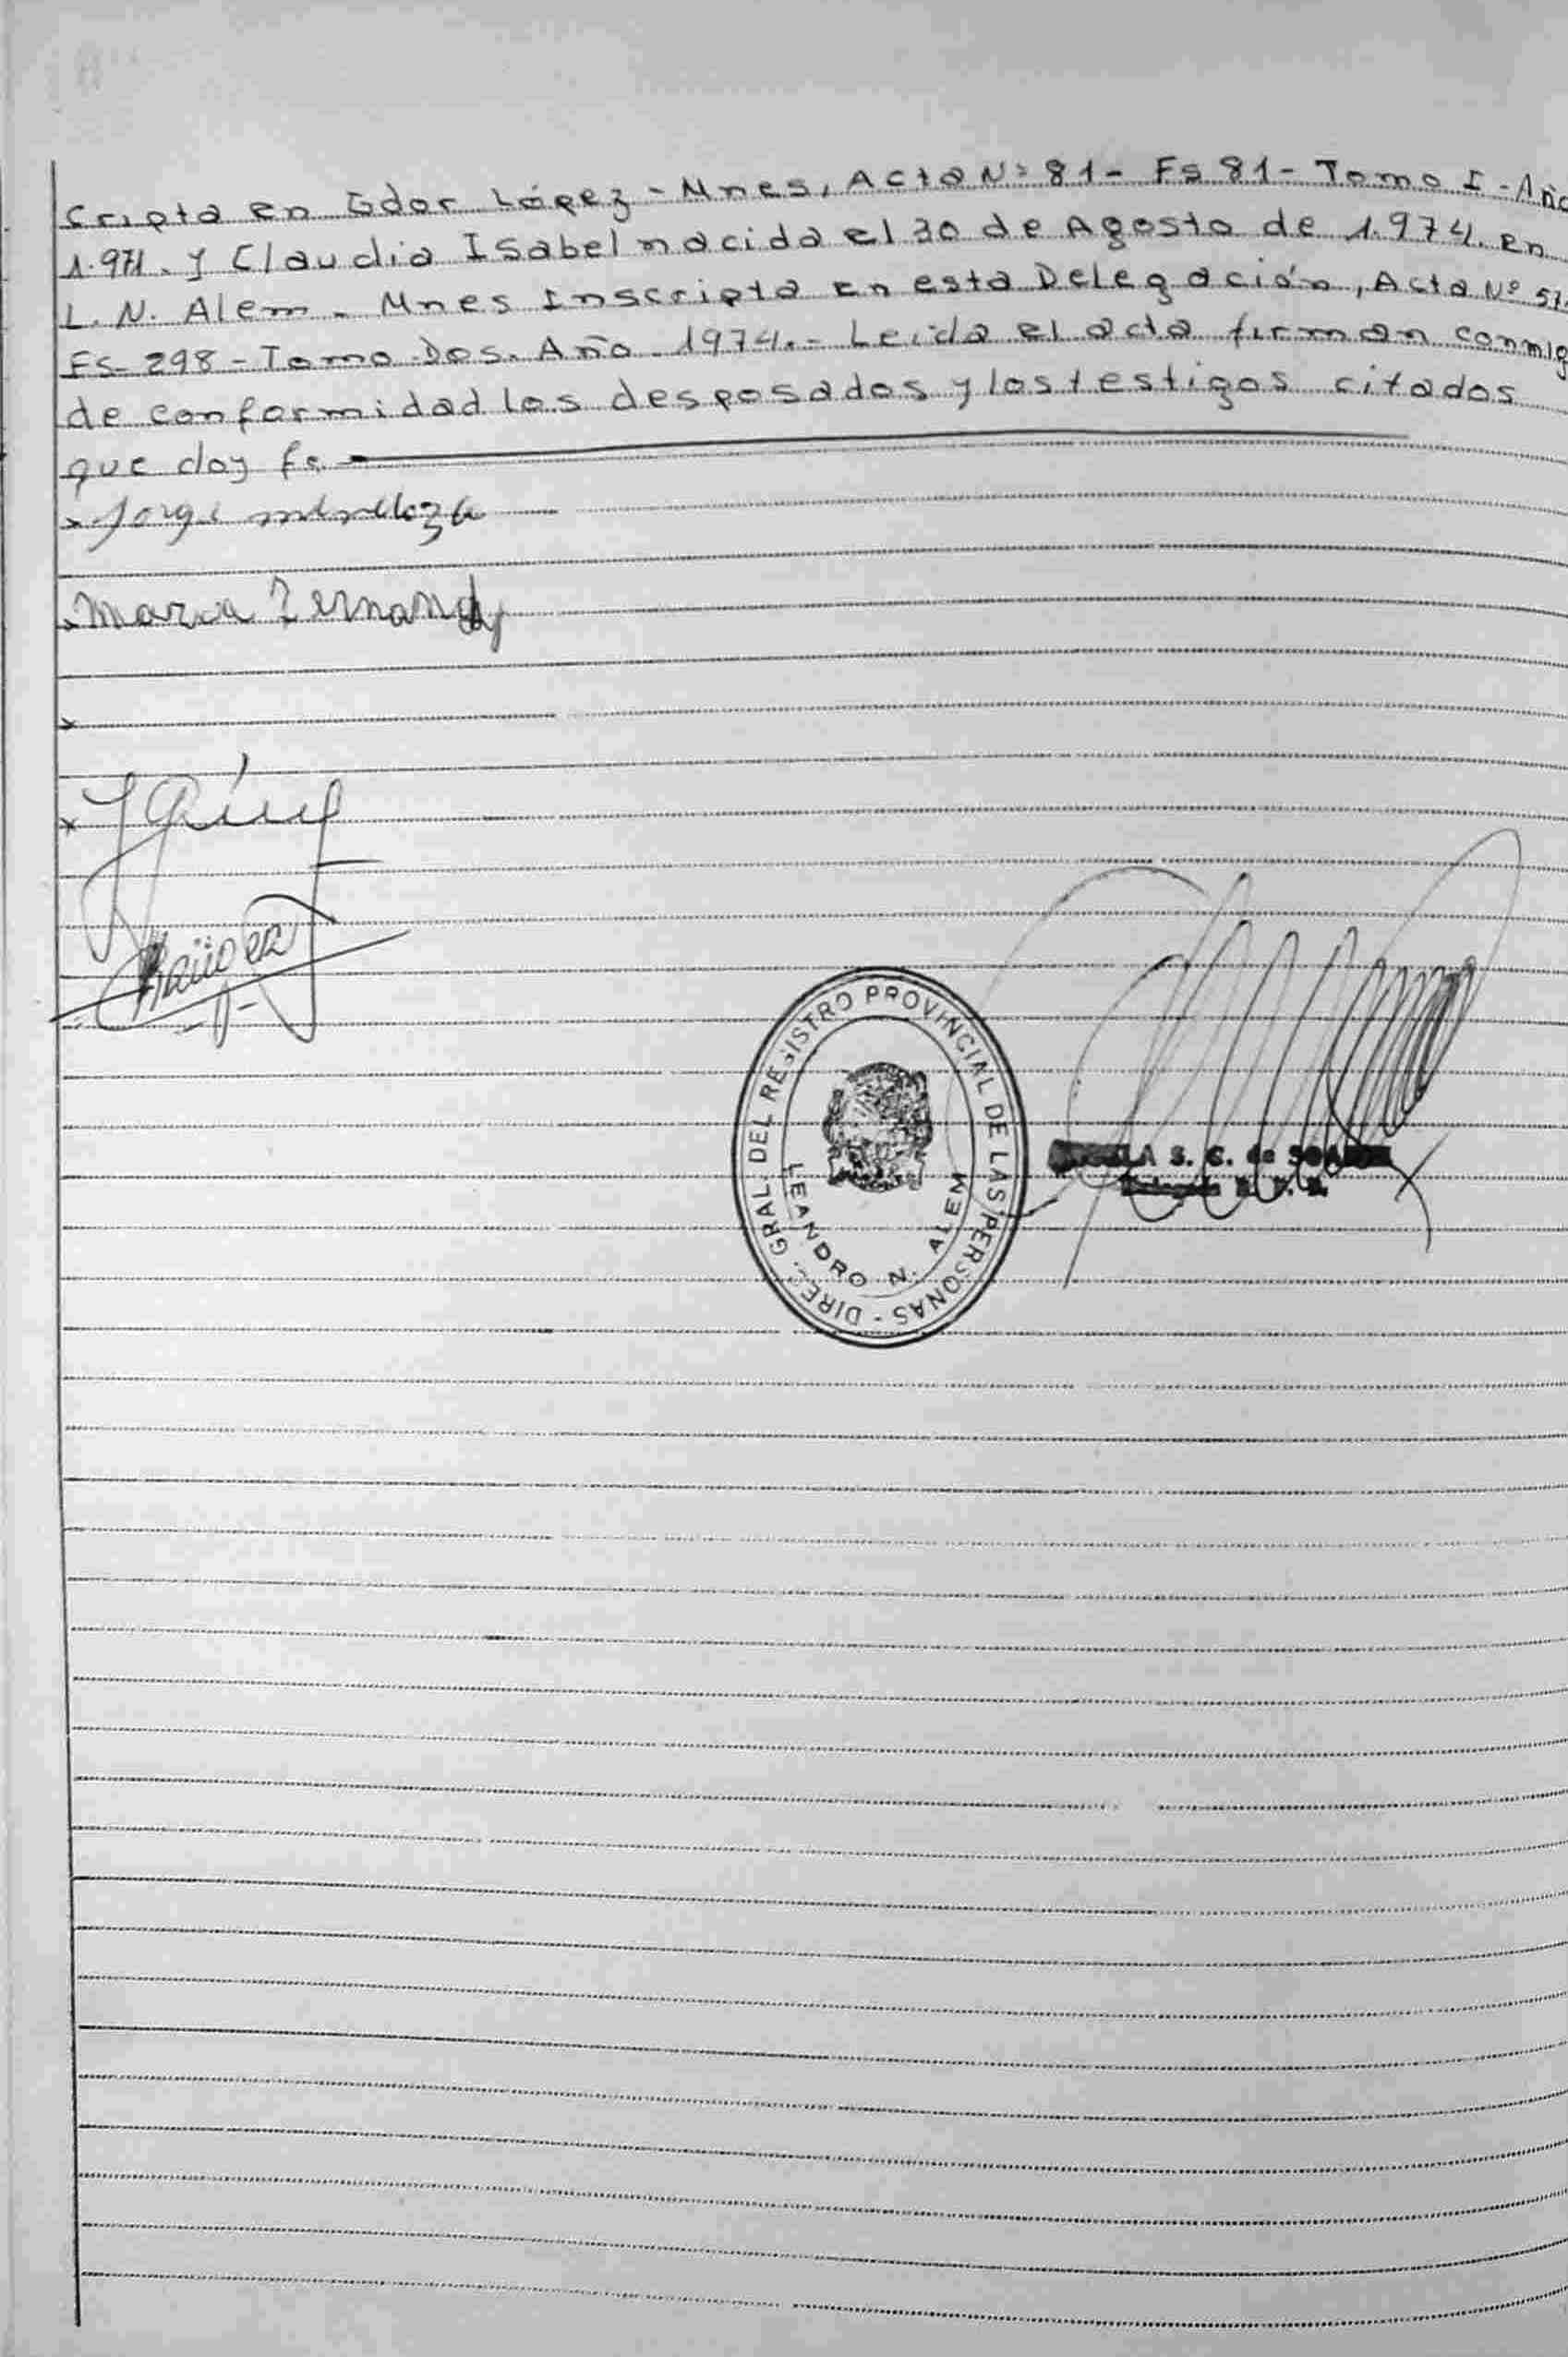 cripta en Gdor López - Mnes, Acta Nº 81 - Fs 81 - Tomo I - Año
1.971. y Claudia Isabel nacida el 30 de Agosto de 1.974. en
L. N. Alem - Mnes Inscripta en esta Delegación, Acta Nº 57
Fs- 298 - Tomo Dos. Año 1974.- Leída el acta firman conmig
de conformidad los desposados y los testigos citados
que doy fe
Jorge
Maria
DIREC. GRAL. DEL REGISTRO PROVINCIAL DE LAS PERSONAS -
LEANDRO N. ALEM
S. C. de